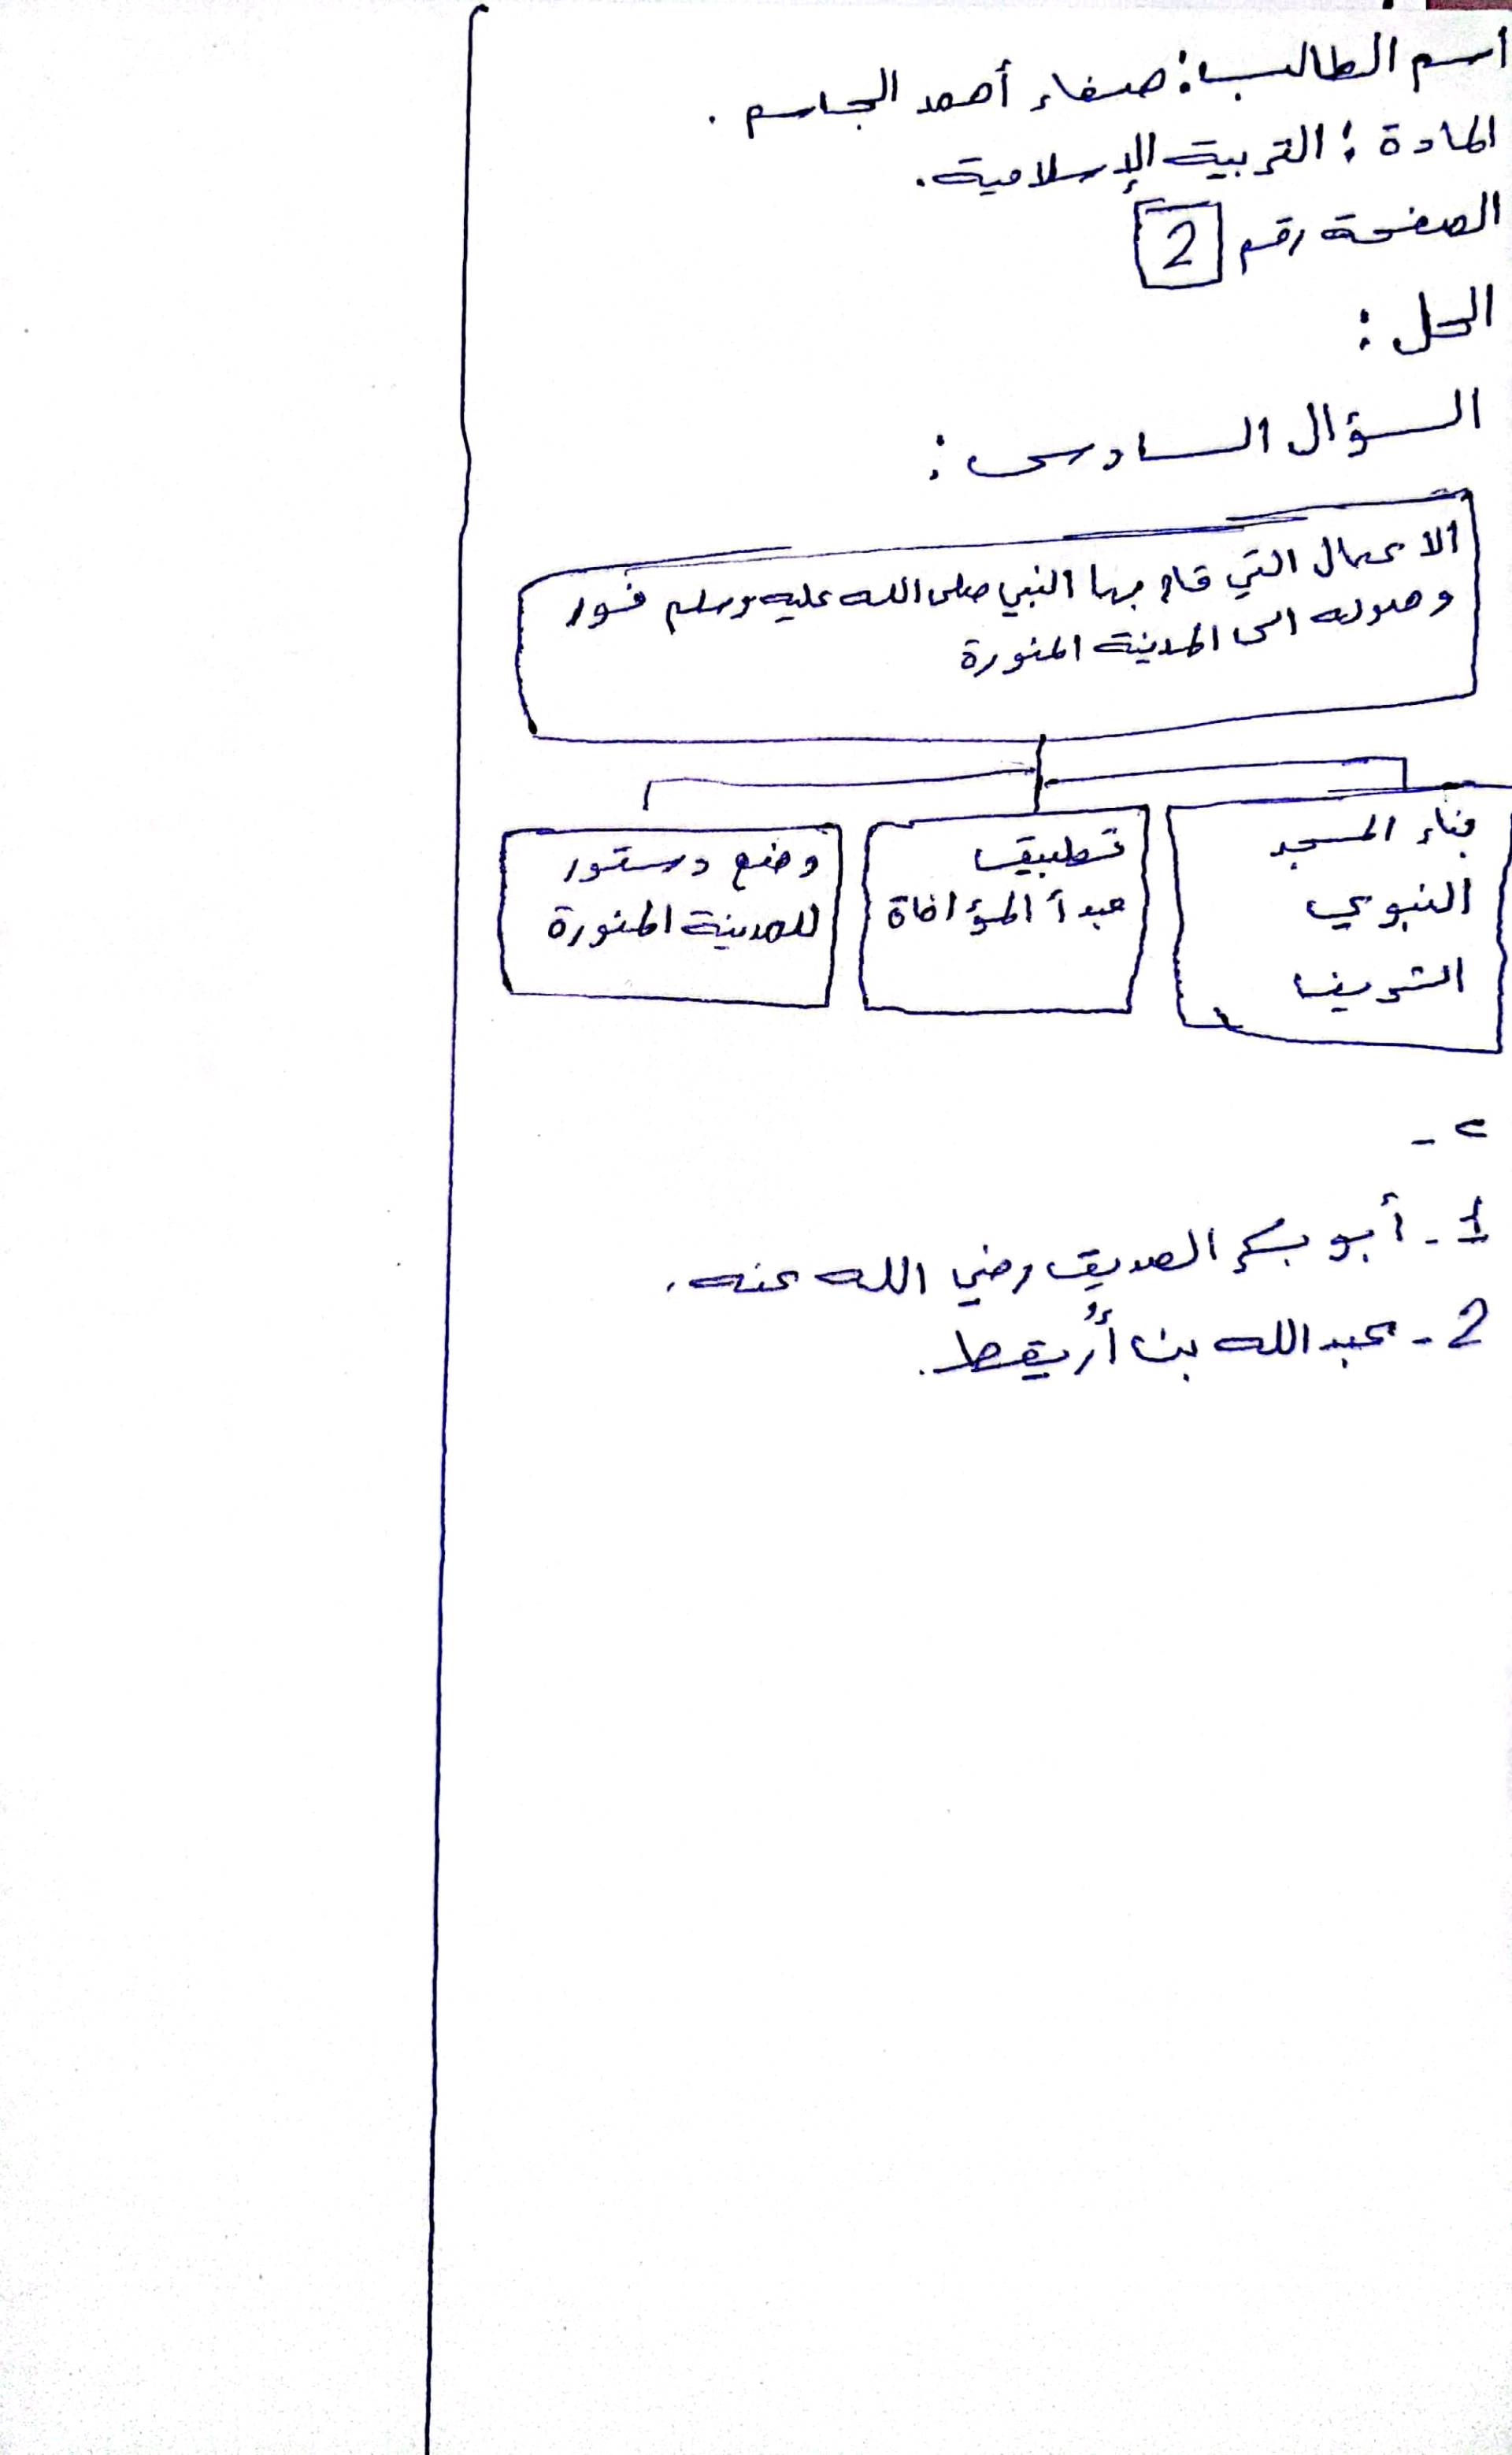 اسم الطالب: صفاء أحمد الجاسم.
المادة: التربية الإسلامية.
الصفحة رقم 2
الحل:
السؤال السادس:
الاعمال التي قام بها النبي صلى الله عليه وسلم فور
وصوله الى المدينة المنورة
بناء المسجد
النبوي
الشريف
تطبيق
مبدأ المؤاخاة
وضع دستور
للمدينة المنورة
٢-
1- أبو بكر الصديق رضي الله عنه.
2- عبد الله بن أُريقط.